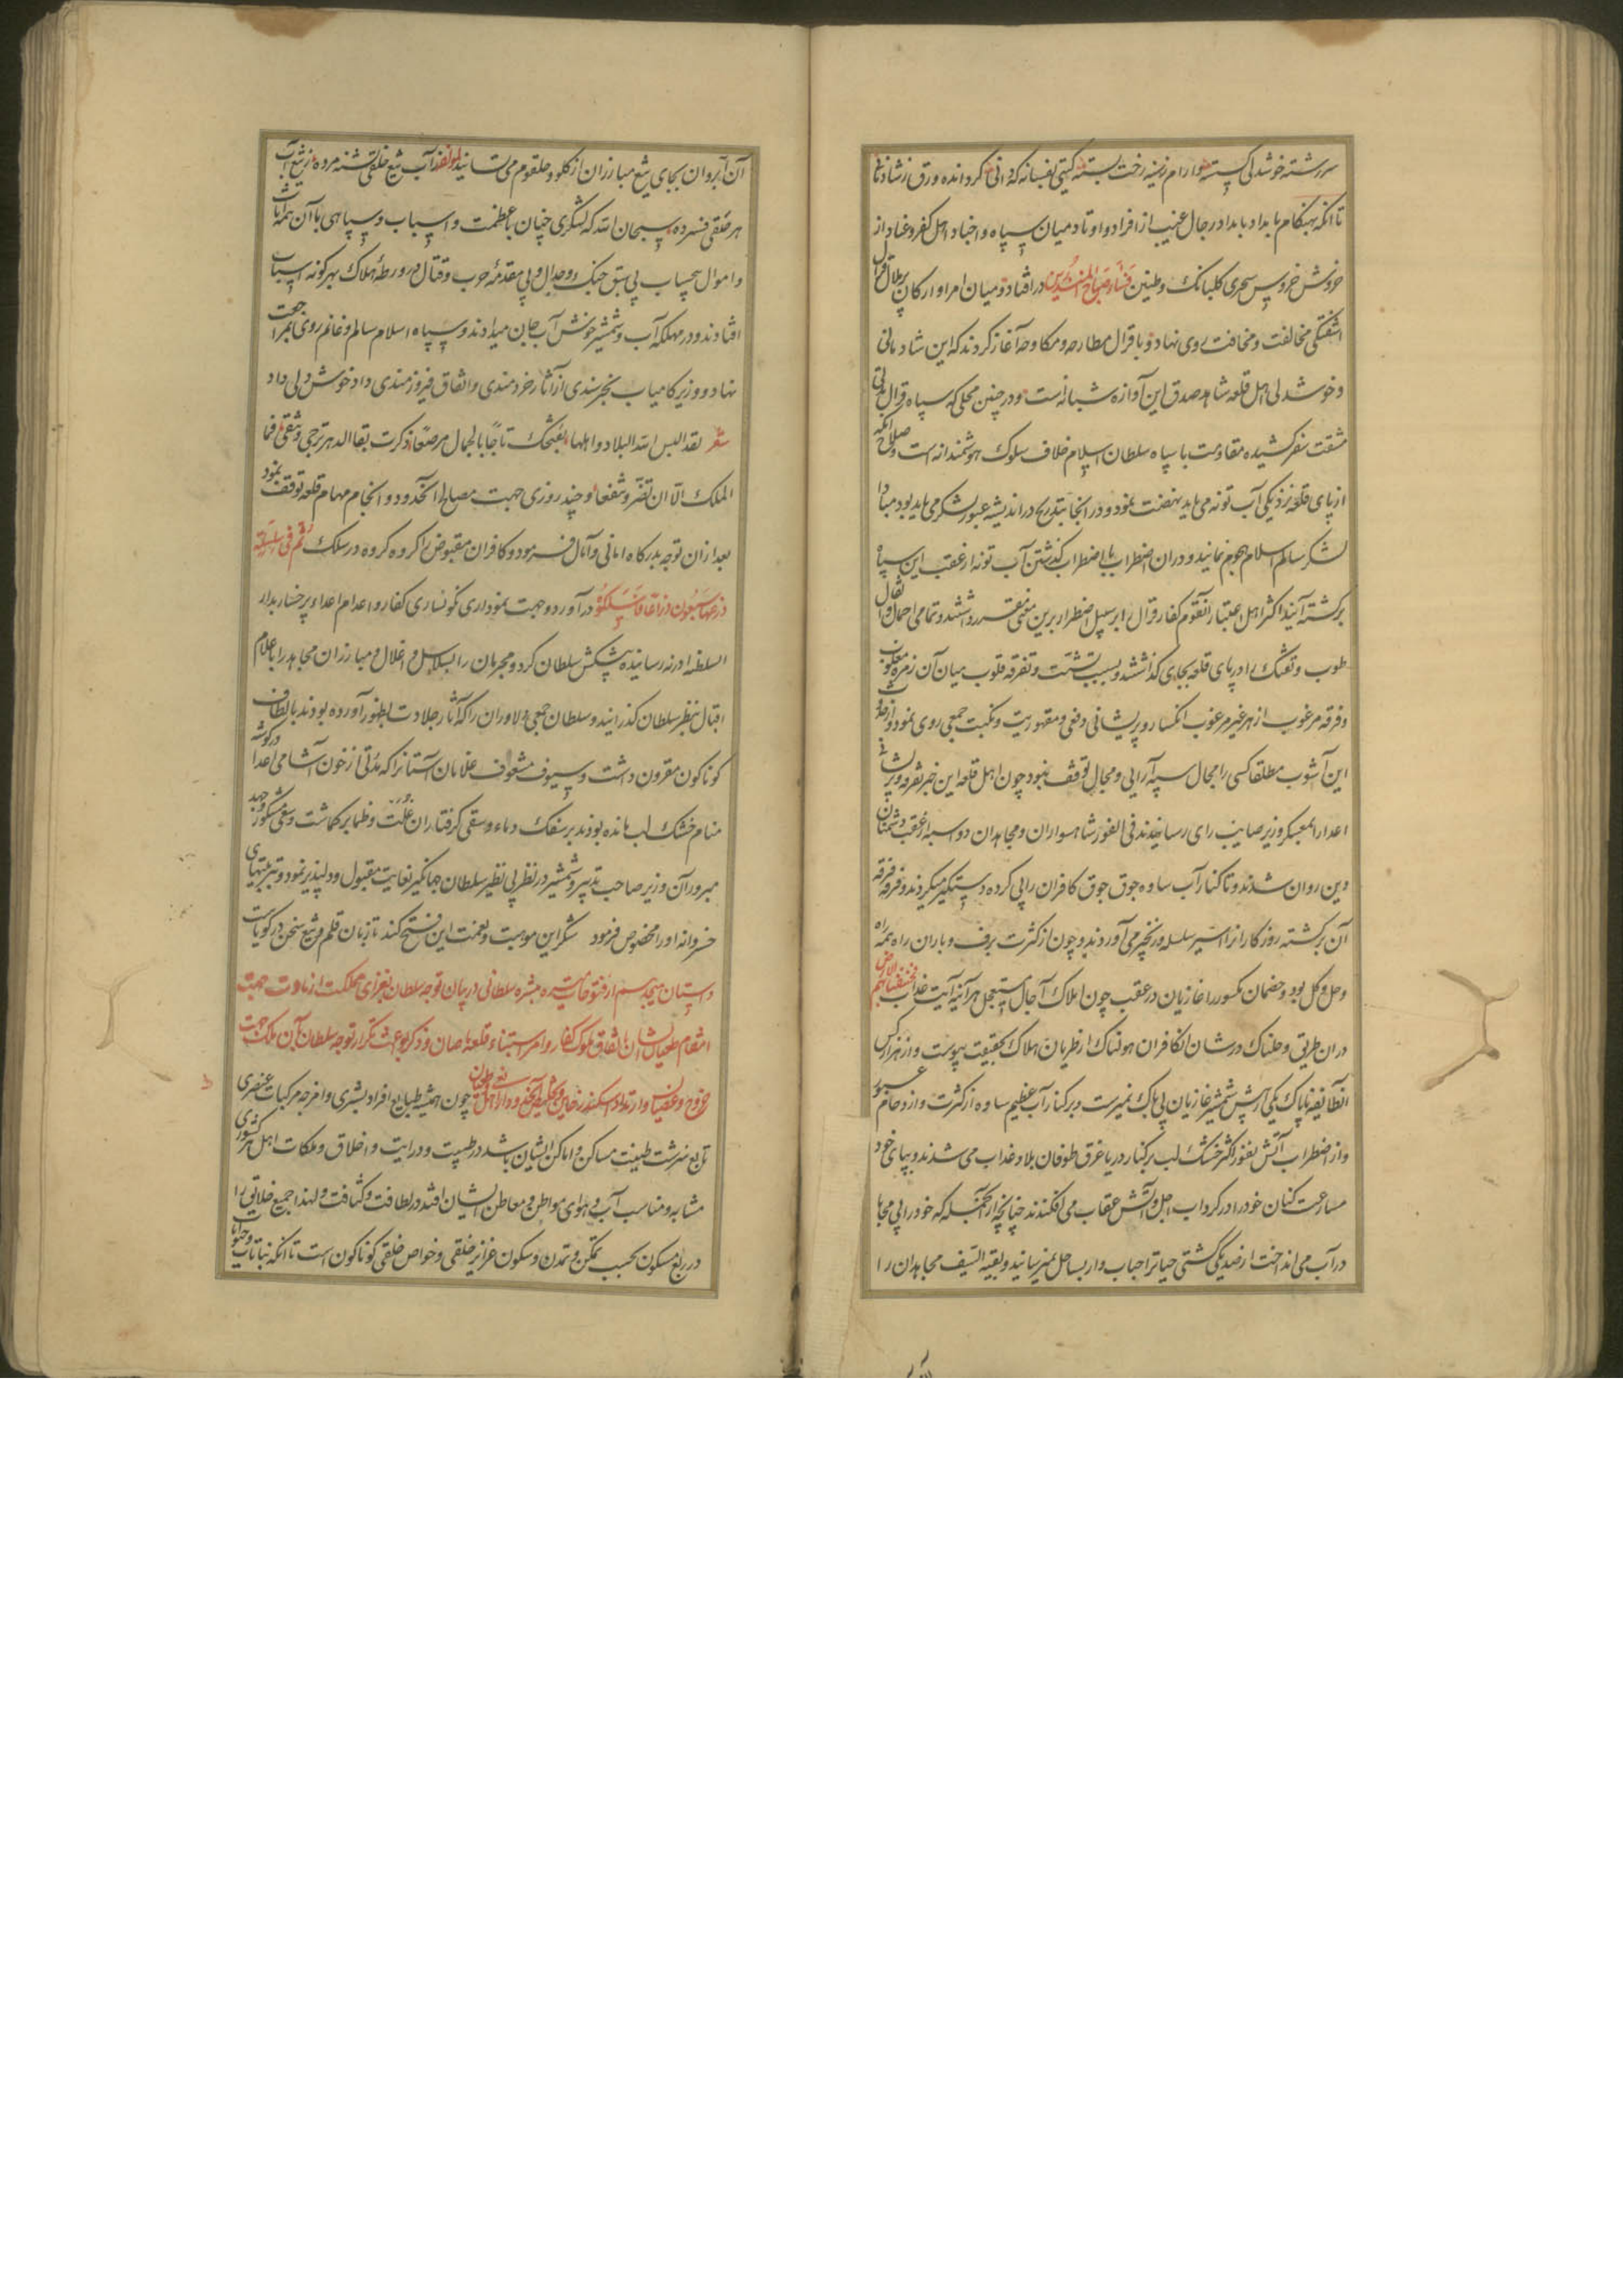 سررشته خوشدلی گسسته وارام زمینه رخت بسته گیتی نفسانه کردانده ورق زشادمانی
تا انکه بهنکام بامداد بامداد رجال غیب از افراد و اوتاد میان سپاه و اجناد اهل کفر و عناد از
خروش خروس سحری کلبانک وطنین فساء صباح المنذرین در افتاد و میان امرا و ارکان قرال
اشفتکی مخالفت و مخافت روی نهاد و با قرال مطارحه و مکاوحه آغاز کردند که این شادمانی
و خوشدلی اهل قلعه شاهد صدق این آوازه شبانه است و در چنین محلی که سپاه قرال
مشقت سفر کشیده مقاومت با سپاه سلطان اسلام خلاف سلوک هوشمندانه است و صلاح انکه
از پای قلعه نزدیکی آب تونه می باید نهضت نمود و در انجا بتدریج در اندیشه عبور لشکر می باید بود مبادا
لشکر سالم اسلام هجوم نمایند و دران اضطراب با اضطراب کذشتن آب تونه از عقب این سپاه
برکشته آیند اکثر اهل اعتبار آنقوم کفار و قرال بر سبیل اضطرار برین معنی متقرر داشتند و تمامی احمال و اثقال
طوب و تفنک را در پای قلعه بجای کذاشتند و بسبب تشتت و تفرقه قلوب میان آن زمره مغلوب
و فرقه مرعوب از هر غیر مرغوب انکسار و پریشانی دفعی و مقهوریت و نکبت جمعی روی نمود و از
این آشوب مطلقا کسی را مجال سپه آرایی و مجال توقف نبود چون اهل قلعه این خبر تفرقه و پریشانی
اعدا را بمعسکر وزیر صایب رای رسانیدند فی الفور شاهسواران و مجاهدان دو اسبه از عقب دشمنان
دین روان شدند و تا کنار آب ساوه جوق جوق کافران را پی کرده دستکیر میکردند و فرقه فرقه
آن برکشته روزکاران را اسیر سلسله و زنجیر می آوردند و چون از کثرت برف و باران راه همه
وحل و کل بود و خصمان مکسور را غازیان در عقب چون املاک آجال مستعجل هرآینه آیت عذاب فخسفنا بهم الارض
دران طریق وحلناک در شان انکافران هولناک از طریان هلاک بحقیقت پیوست و از هزار کس
انطایفه ناپاک یکی از پیش شمشیر غازیان بی باک نمیرست و بر کنار آب عظیم ساوه از کثرت و ازدحام عبور
و از اضطراب آتش نفور اکثر خشک لب بر کنار دریا غرق طوفان بلا و عذاب می شدند و بپای خود
مسارعت کنان خود را در کرداب اجل و آتش عقاب می افکندند چنانچه از آنجمله که خود را بی محابا
در آب می انداخت از صد یکی کشتی حیات را حباب وار بساحل نمیرسانید و بقیة السیف مجاهدان را
آن آبروان بجای تیغ مبارزان از کلو و حلقوم می ستانید لمؤلفه از آب تیغ خلقی تشنه مرده ز تیغ آب
هر خلقی فسرده سبحان الله که لشکری چنان با عظمت و اسباب و سپاهی باآن همه اثاث
و اموال بیحساب بی سبق جنک و جدال و بی مقدمه حرب و قتال در ورطه هلاک بهر کونه اسباب
افتادند و در مهلکه آب و شمشیر خونش آب جان میدادند و سپاه اسلام سالم و غانم روی بمراجعت
نهاد و وزیر کامیاب بخرسندی از آثار خردمندی و اتفاق فیروزمندی داد خوش دلی داد
شعر لقد البس الله البلاد و اهلها بفتحک تاجا بالجمال مرصعا ذکرت بقا الدهر ترجی وتتقی فما
الملک الا ان تضر و تنفعا و چند روزی جهت مصالح آنحدود و انجام مهام قلعه توقف نمود
بعد ازان توجه بدرکاه امانی و آمال فرمود و کافران مقبوض را کروه کروه در سلک ثم فی سلسلة
ذرعها سبعون ذراعا فاسلکوه در آورد و جهت نموداری کونساری کفار و اعدام اعداء پرخسار بدار
السلطنه ادرنه رسانیده پیشکش سلطان کرد و مجرمان را بسلاسل و اغلال و مبارزان مجاهد را با علام
اقبال بنظر سلطان کذرانید و سلطان جمعی دلاوران را که آثار جلادت بظهور آورده بودند بالطاف
کوناکون مقرون داشت و سیوف مشعوف غلامان آستان را که مدتی از خون آشامی اعدا در کوشه
منام خشک لب مانده بودند بر سفک دماء و سقی کرفتاران غلت و ظما برکماشت و سعی مشکور و جهد
مبرور آن وزیر صاحب تدبیر و شمشیر در نظر بی نظیر سلطان جهانکیر بغایت مقبول و دلپذیر نمود و تربیتهای
خسروانه او را مخصوص فرمود شکر این موهبت و نعمت این فتح کند تا زبان قلم و تیغ سخن در کویاست
داستان هیجدهم از فتوحات میسره مبشره سلطانی در بیان توجه سلطان بغزای مملکت ارناوت جهت
انتقام طغیان ایشان باتفاق ملوک کفار و امر استبناء قلعه ایلبصان و ذکر بواعث تکرار توجه سلطان بآن ملک جهت
خروج و عصیان و ارتداد اسکندر خاین چون همیشه طبایع افراد بشری و امزجه مرکبات عنصری
تابع سرشت طینت مساکن و اماکن ایشان باشد در طیبت و درایت و اخلاق و ملکات اهل هر کشوری
مشابه و مناسب آب و هوای مواطن و معاطن ایشان افتد در لطافت و کثافت و لهذا جمیع خلایق را
در ربع مسکون بحسب تمکن و تمدن و سکون غرایز خلقی و خواص خلقی کوناکون است تا انکه نباتات و حیوانات